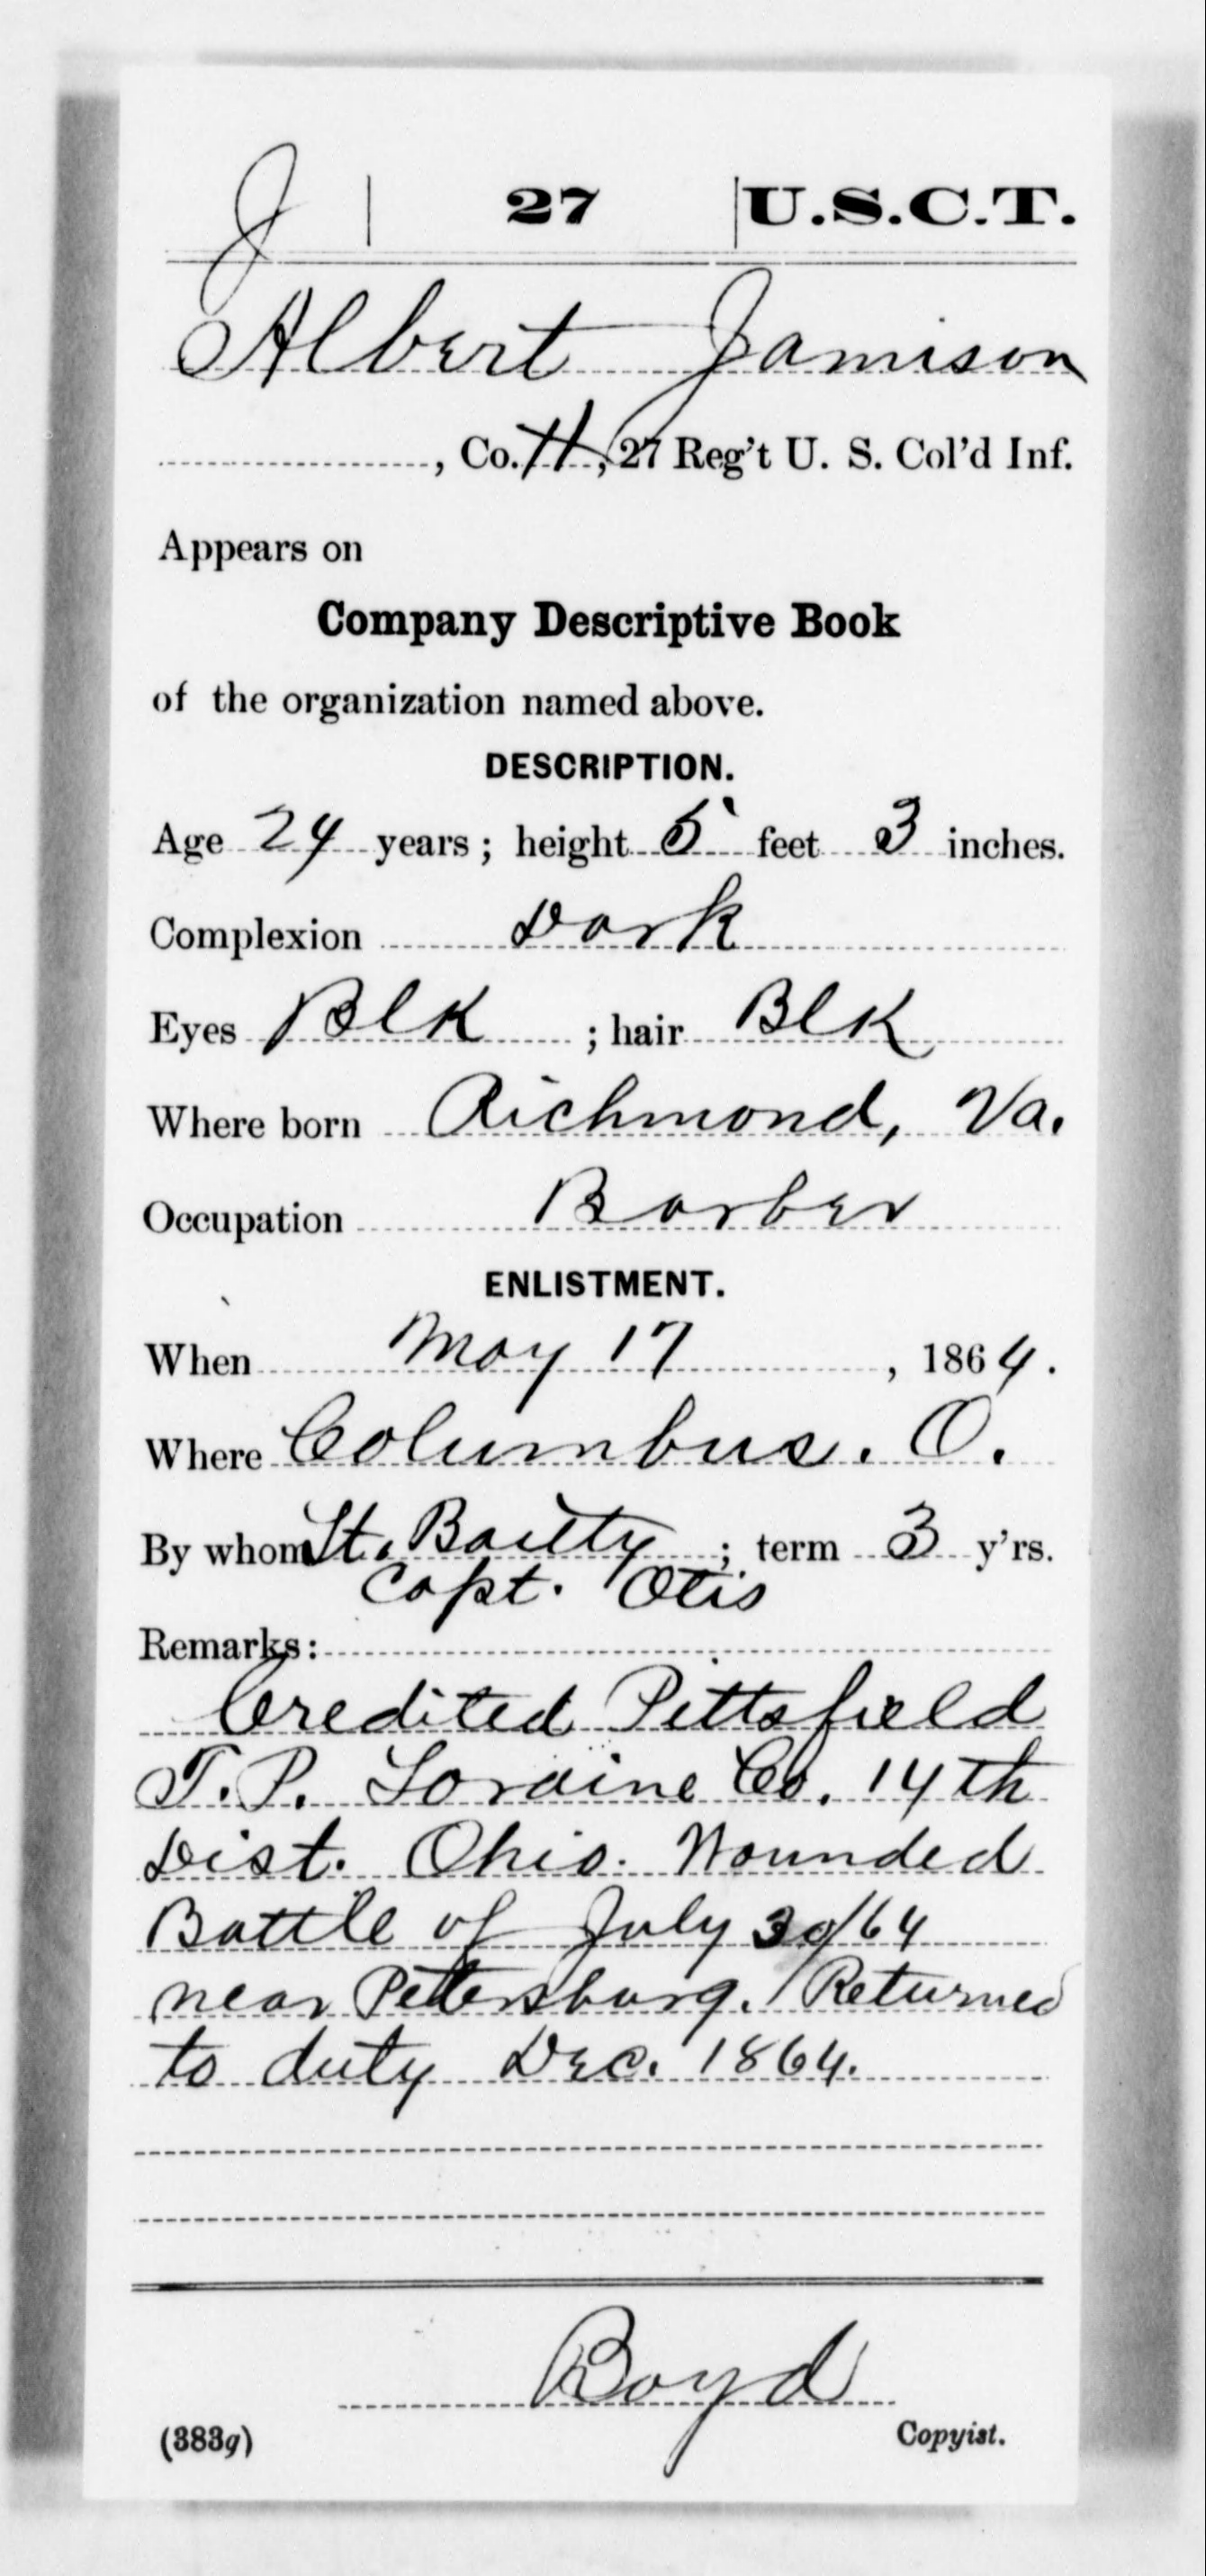 J | 27 | U.S.C.T.
Albert Jamison
, Co. H, 27 Reg't U. S. Col'd Inf.
Appears on
Company Descriptive Book
of the organization named above.
DESCRIPTION.
Age 24 years; height 5 feet 3 inches.
Complexion Dark
Eyes Blk ; hair Blk
Where born Richmond, Va.
Occupation Barber
ENLISTMENT.
When May 17, 1864.
Where Columbus. O.
By whom Lt. Bailty ; term 3 y'rs.
Capt. Otis
Remarks:
Credited Pittsfield
T.P. Loraine Co. 14th
Dist. Ohio. Wounded
Battle of July 30/64
near Petersburg. Returned
to duty Dec. 1864.
Boyd
(383g) Copyist.